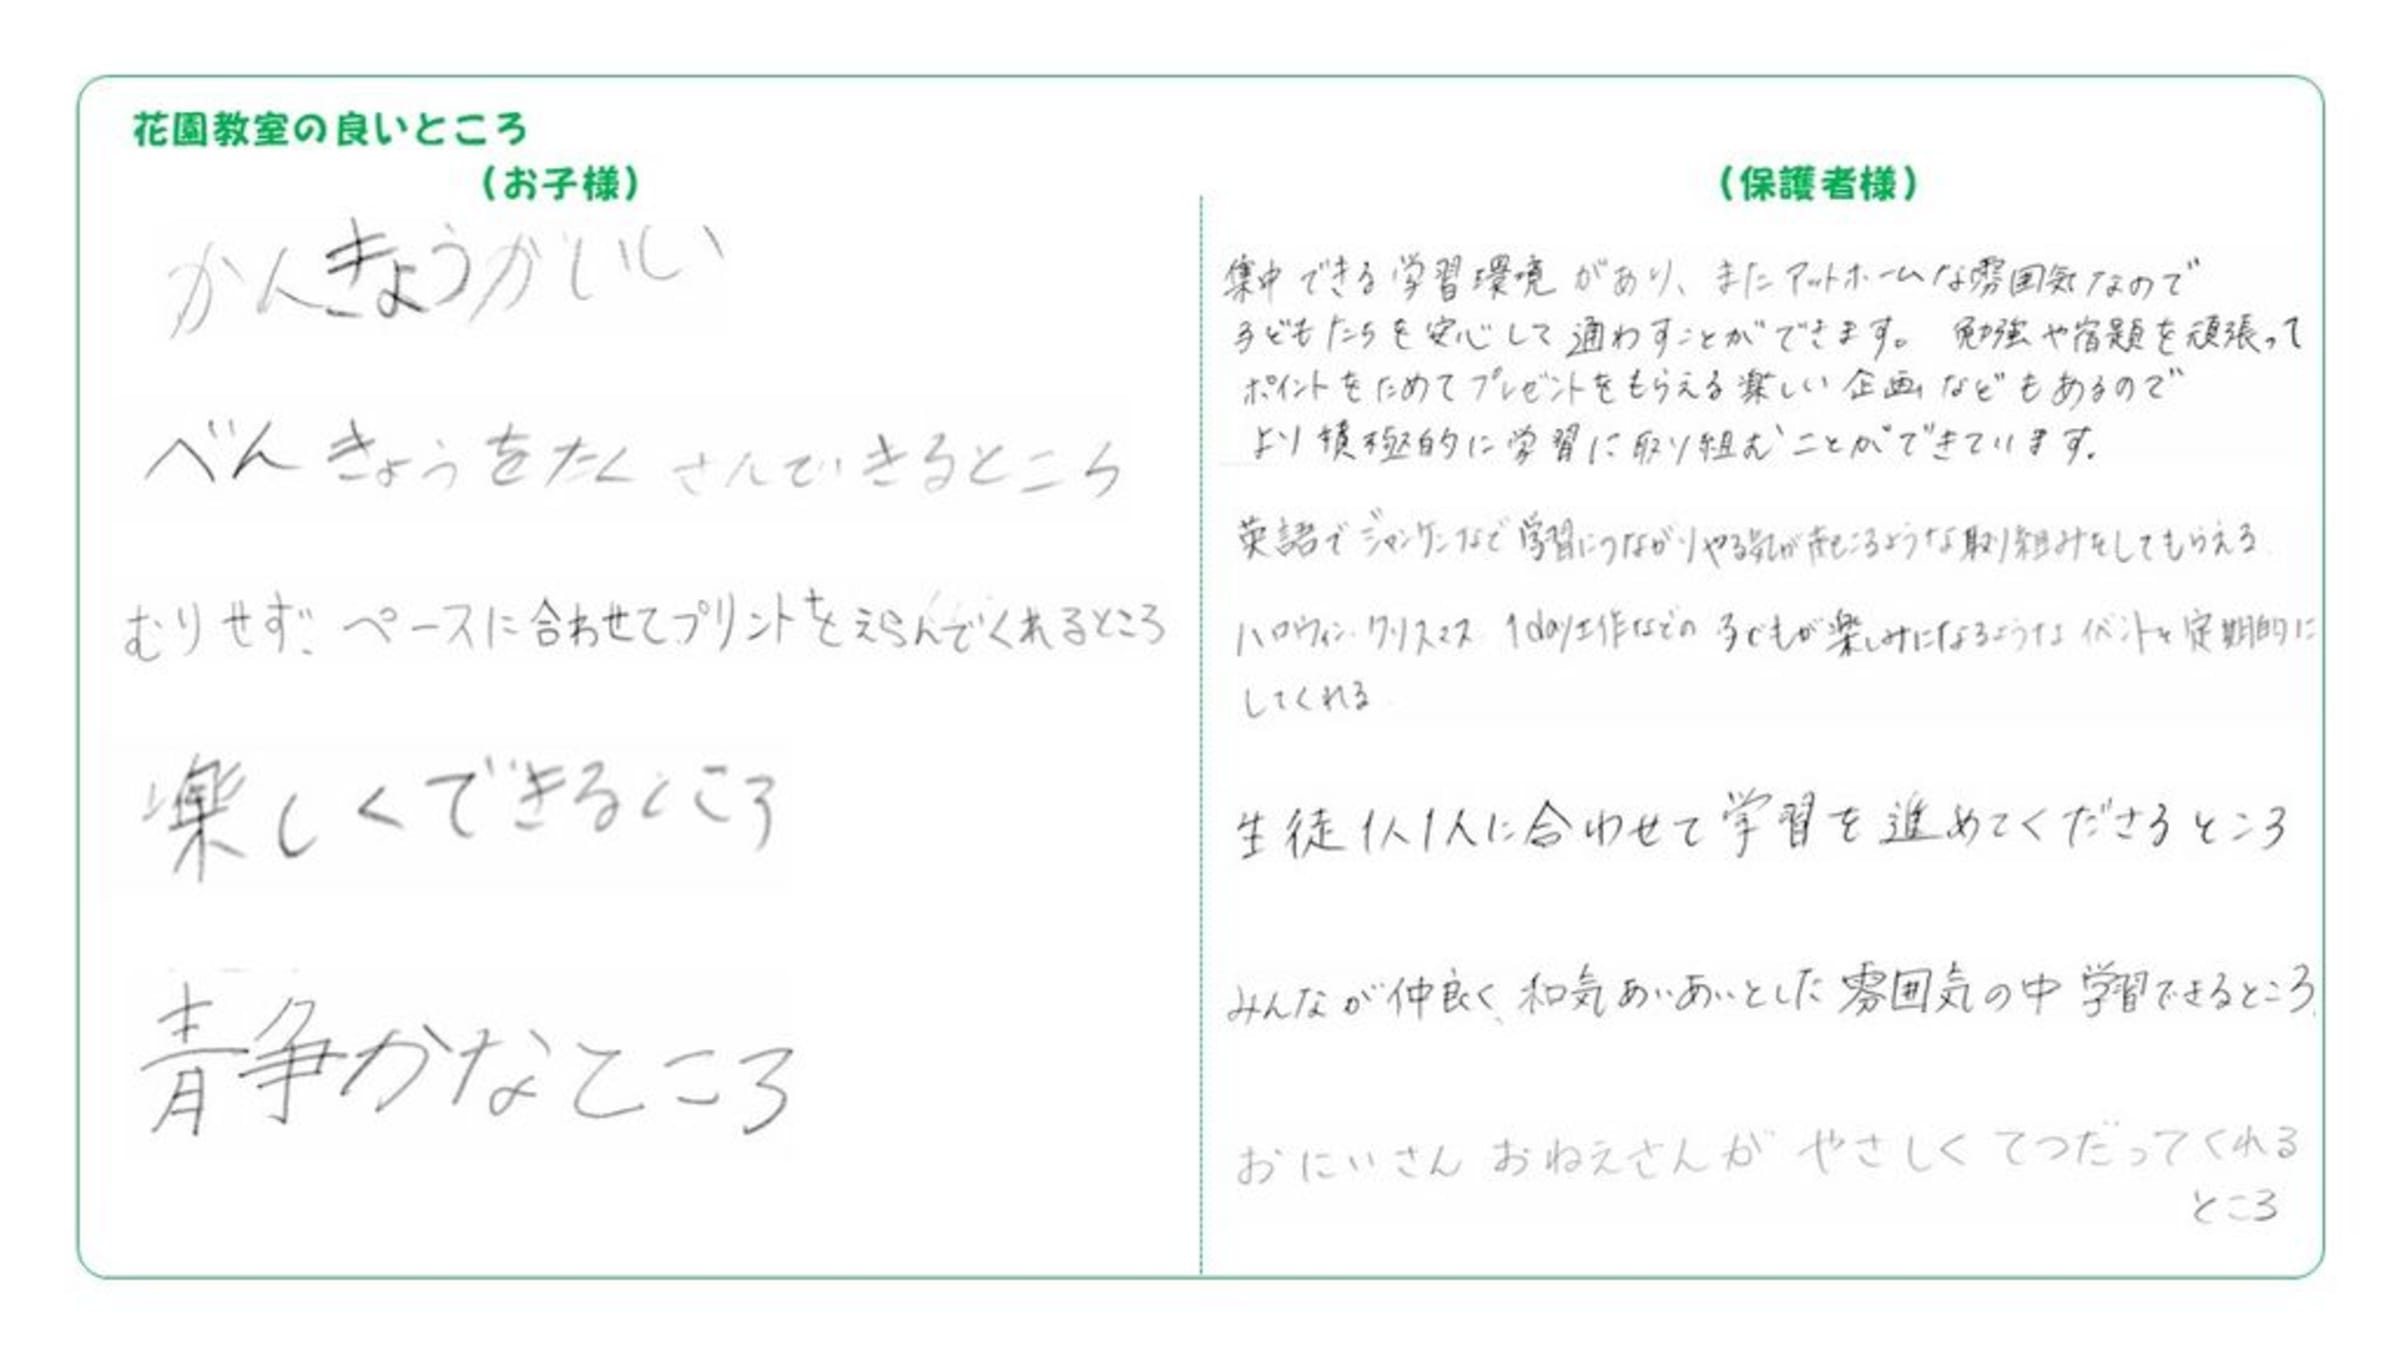 花園教室の良いところ
（お子様）
かんきょうがいい
べんきょうをたくさんできるところ
むりせず、ペースに合わせてプリントをえらんでくれるところ
楽しくできるところ
静かなところ
（保護者様）
集中できる学習環境があり、またアットホームな雰囲気なので
子どもたちを安心して通わすことができます。勉強や宿題を頑張って
ポイントをためてプレゼントをもらえる楽しい企画などもあるので
より積極的に学習に取り組むことができています。
英語でジャンケンなど学習につながりやる気が起こるような取り組みをしてもらえる
ハロウィン・クリスマス 1day工作などの子どもが楽しみになるようなイベントを定期的に
してくれる
生徒1人1人に合わせて学習を進めてくださるところ
みんなが仲良く、和気あいあいとした雰囲気の中学習できるところ。
おにいさん おねえさんが やさしく てつだってくれる
ところ